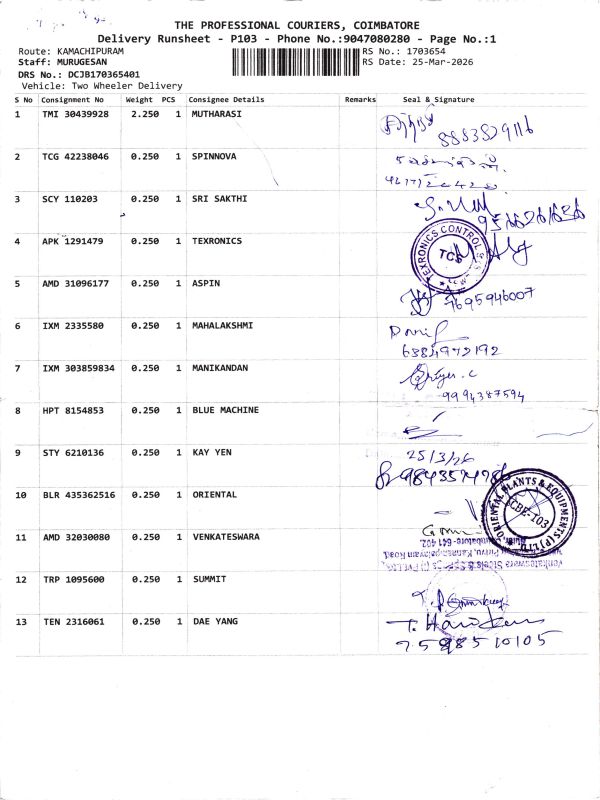 THE PROFESSIONAL COURIERS, COIMBATORE
Delivery Runsheet - P103 - Phone No.:9047080280 - Page No.:1
Route: KAMACHIPURAM RS No.: 1703654
Staff: MURUGESAN RS Date: 25-Mar-2026
DRS No.: DCJB170365401
Vehicle: Two Wheeler Delivery
S No Consignment No Weight PCS Consignee Details Remarks Seal & Signature
1 TMI 30439928 2.250 1 MUTHARASI
8883829116
2 TCG 42238046 0.250 1 SPINNOVA
3 SCY 110203 0.250 1 SRI SAKTHI
4 APK 1291479 0.250 1 TEXRONICS
TEXRONICS CONTROL
5 AMD 31096177 0.250 1 ASPIN
7695946007
6 IXM 2335580 0.250 1 MAHALAKSHMI
6384972192
7 IXM 303859834 0.250 1 MANIKANDAN
9994387594
8 HPT 8154853 0.250 1 BLUE MACHINE
9 STY 6210136 0.250 1 KAY YEN
25/3/26
10 BLR 435362516 0.250 1 ORIENTAL
ORIENTAL PLANTS & EQUIPMENTS (P) LTD.
CBE-103
11 AMD 32030080 0.250 1 VENKATESWARA
12 TRP 1095600 0.250 1 SUMMIT
13 TEN 2316061 0.250 1 DAE YANG
7598510105